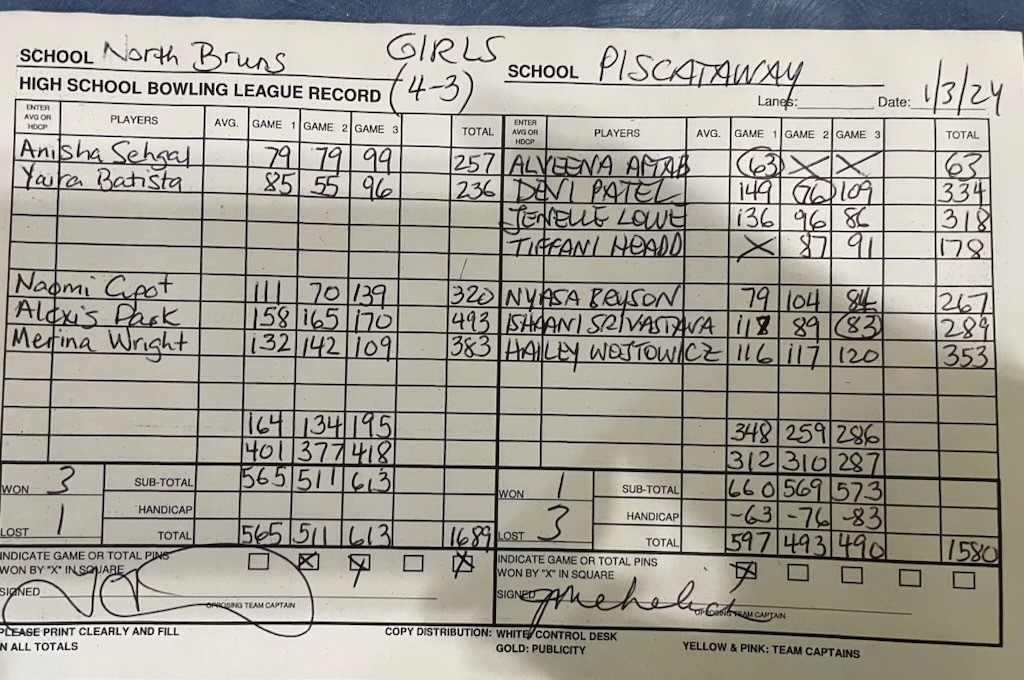 SCHOOL North Bruns GIRLS SCHOOL PISCATAWAY
HIGH SCHOOL BOWLING LEAGUE RECORD (4-3) Lanes: Date: 1/3/24
ENTER AVG OR HDCP PLAYERS AVG. GAME 1 GAME 2 GAME 3 TOTAL ENTER AVG OR HDCP PLAYERS AVG. GAME 1 GAME 2 GAME 3 TOTAL
Anisha Sehgal 79 79 99 257 ALVEENA AFTAB 63 X X 63
Yaira Batista 85 55 96 236 DEVI PATEL 149 76 109 334
JENELLE LOWE 136 96 86 318
TIFFANI HEADD X 87 91 178
Naomi Cypot 111 70 139 320 NYASA BRYSON 79 104 84 267
Alexis Park 158 165 170 493 ISHAANI SRIVASTAVA 117 89 83 289
Merina Wright 132 142 109 383 HAILEY WOJTOWICZ 116 117 120 353
164 134 195 348 259 286
401 377 418 312 310 287
WON 3 SUB-TOTAL 565 511 613 WON 1 SUB-TOTAL 660 569 573
HANDICAP HANDICAP -63 -76 -83
LOST 1 TOTAL 565 511 613 1689 LOST 3 TOTAL 597 493 490 1580
INDICATE GAME OR TOTAL PINS WON BY "X" IN SQUARE X X X INDICATE GAME OR TOTAL PINS WON BY "X" IN SQUARE X
SIGNED OPPOSING TEAM CAPTAIN SIGNED OPPOSING TEAM CAPTAIN
PLEASE PRINT CLEARLY AND FILL COPY DISTRIBUTION: WHITE/CONTROL DESK YELLOW & PINK: TEAM CAPTAINS
N ALL TOTALS GOLD: PUBLICITY